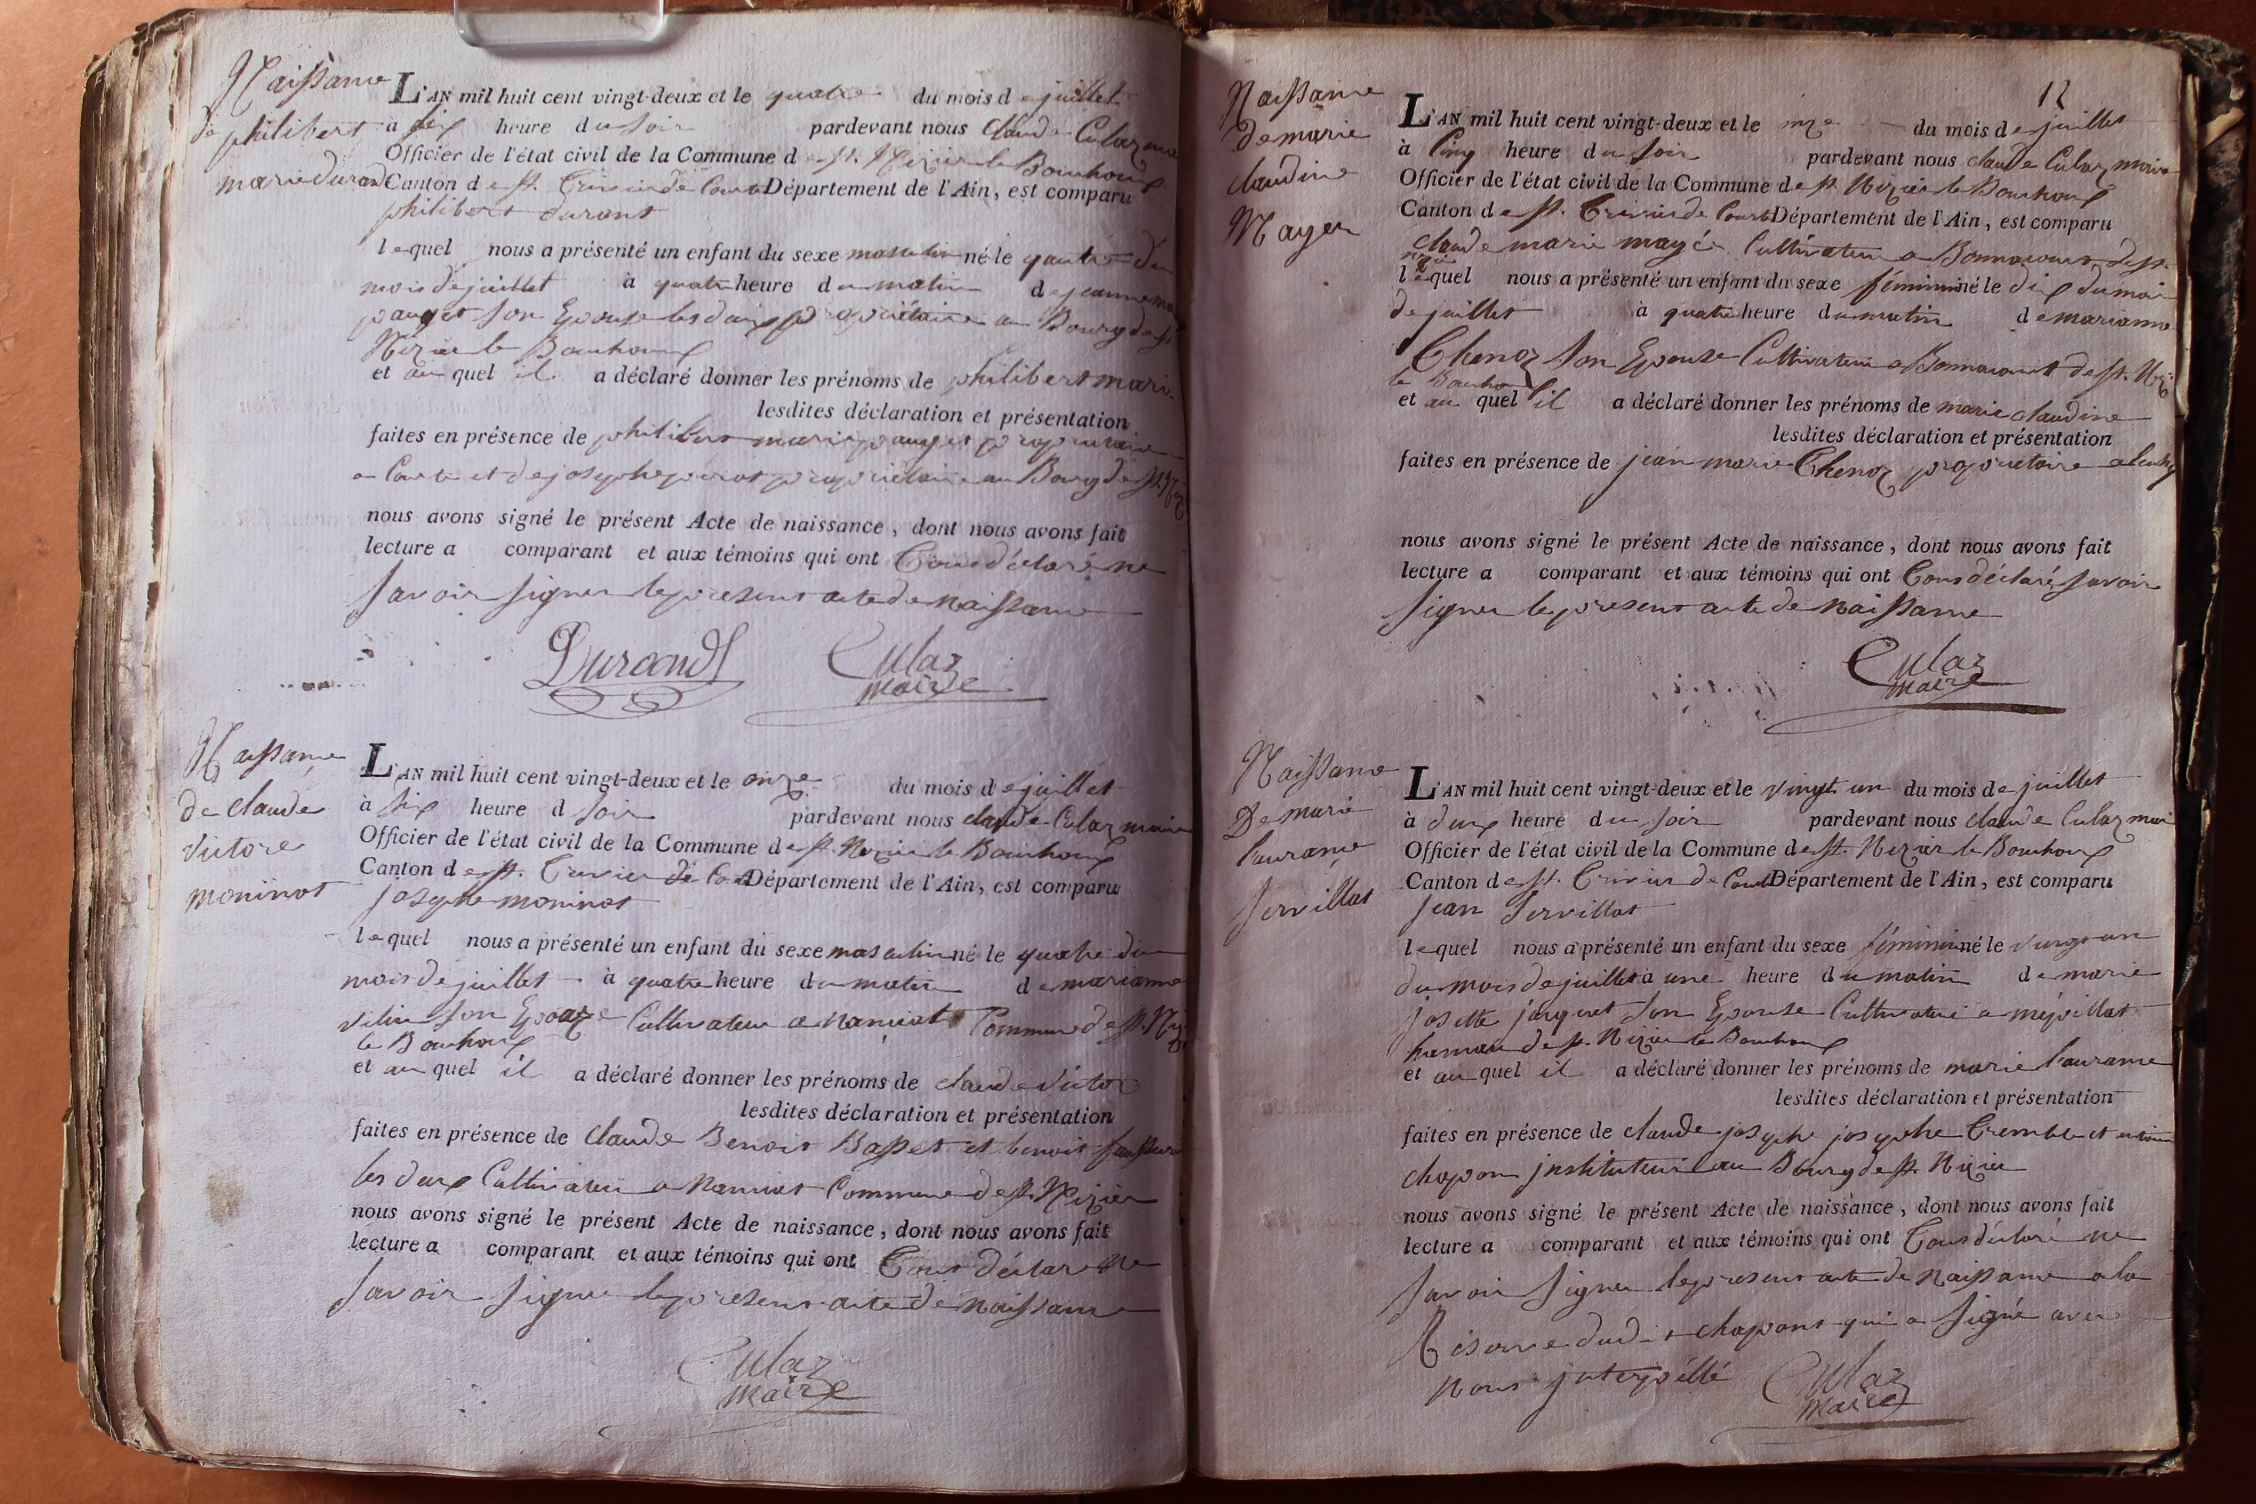 Naissance
de philibert
marie durand
L'AN mil huit cent vingt-deux et le quatre du mois de juillet
à six heure du soir pardevant nous claude Culaz maire
Officier de l'état civil de la Commune de st. Nizier le Bouchoux
Canton de st. Trivier de Court Département de l'Ain, est comparu
philibert durant
lequel nous a présenté un enfant du sexe masculin né le quatre du
mois de juillet à quatre heure du matin de jeanne
pauget son Epouse les deux propriétaire au Bourg de st
Nizier le Bouchoux
et au quel il a déclaré donner les prénoms de philibert marie
lesdites déclaration et présentation
faites en présence de philibert marie pauget proprietaire
a et de josephe perrot propriétaire au Bourg de st Niz
nous avons signé le présent Acte de naissance, dont nous avons fait
lecture a comparant et aux témoins qui ont Tous déclaré ne
savoir signer le present acte de naissance
Durand Culaz
maire
Naissance
de claude
victore
moninot
L'AN mil huit cent vingt-deux et le onze du mois de juillet
à six heure d soir pardevant nous claude Culaz maire
Officier de l'état civil de la Commune de st. Nizier le Bouchoux
Canton de st. Trivier de Court Département de l'Ain, est comparu
josephe moninot
lequel nous a présenté un enfant du sexe masculin né le quatre du
mois de juillet à quatre heure du matin de marianne
son Epouse Cultivateur a Manciat Commune de st. Niz
le Bouchoux
et au quel il a déclaré donner les prénoms de claude victor
lesdites déclaration et présentation
faites en présence de claude Benoit Basset et benoit
les deux Cultivateur a Manciat Commune de st. Nizier
nous avons signé le présent Acte de naissance, dont nous avons fait
lecture a comparant et aux témoins qui ont Tous déclare ne
savoir signer le present acte de naissance
Culaz
maire
12
Naissance
de marie
claudine
Mayer
L'AN mil huit cent vingt-deux et le onze du mois de juillet
à cinq heure du soir pardevant nous claude Culaz maire
Officier de l'état civil de la Commune de st Nizier le Bouchoux
Canton de st. Trivier de Court Département de l'Ain, est comparu
claude marie mayé Cultivateur a Bonnacourt de st.
lequel nous a présenté un enfant du sexe féminin né le dix du moi
de juillet à quatre heure du matin de marianne
Chenoz son Epouse Cultivateur a Bonnacourt de st. Niz
le Bouchoux
et au quel il a déclaré donner les prénoms de marie claudine
lesdites déclaration et présentation
faites en présence de jean marie Chenoz propriétaire
nous avons signé le présent Acte de naissance, dont nous avons fait
lecture a comparant et aux témoins qui ont Tous déclaré savoir
signer le present acte de naissance
Culaz
maire
Naissance
De marie
laurance
servillat
L'AN mil huit cent vingt-deux et le vingt un du mois de juillet
à deux heure du soir pardevant nous claude Culaz mai
Officier de l'état civil de la Commune de st. Nizier le Bouchoux
Canton de st. Trivier de Court Département de l'Ain, est comparu
Jean servillat
lequel nous a présenté un enfant du sexe féminin né le vingt un
du mois de juillet a une heure du matin de marie
josette jauquet son Epouse Cultivateur a mépillat
hameau de st. Nizier le Bouchoux
et au quel il a déclaré donner les prénoms de marie laurance
lesdites déclaration et présentation
faites en présence de claude josephe josephe Tremble et antoine
chapon jnstituteur au Bourg de st. Nizier
nous avons signé le présent Acte de naissance, dont nous avons fait
lecture a comparant et aux témoins qui ont Tous déclaré ne
savoir signer le present acte de naissance a la
Réserve dudit chapont qui a signé avec
nous jnterpéllé Culaz
maire